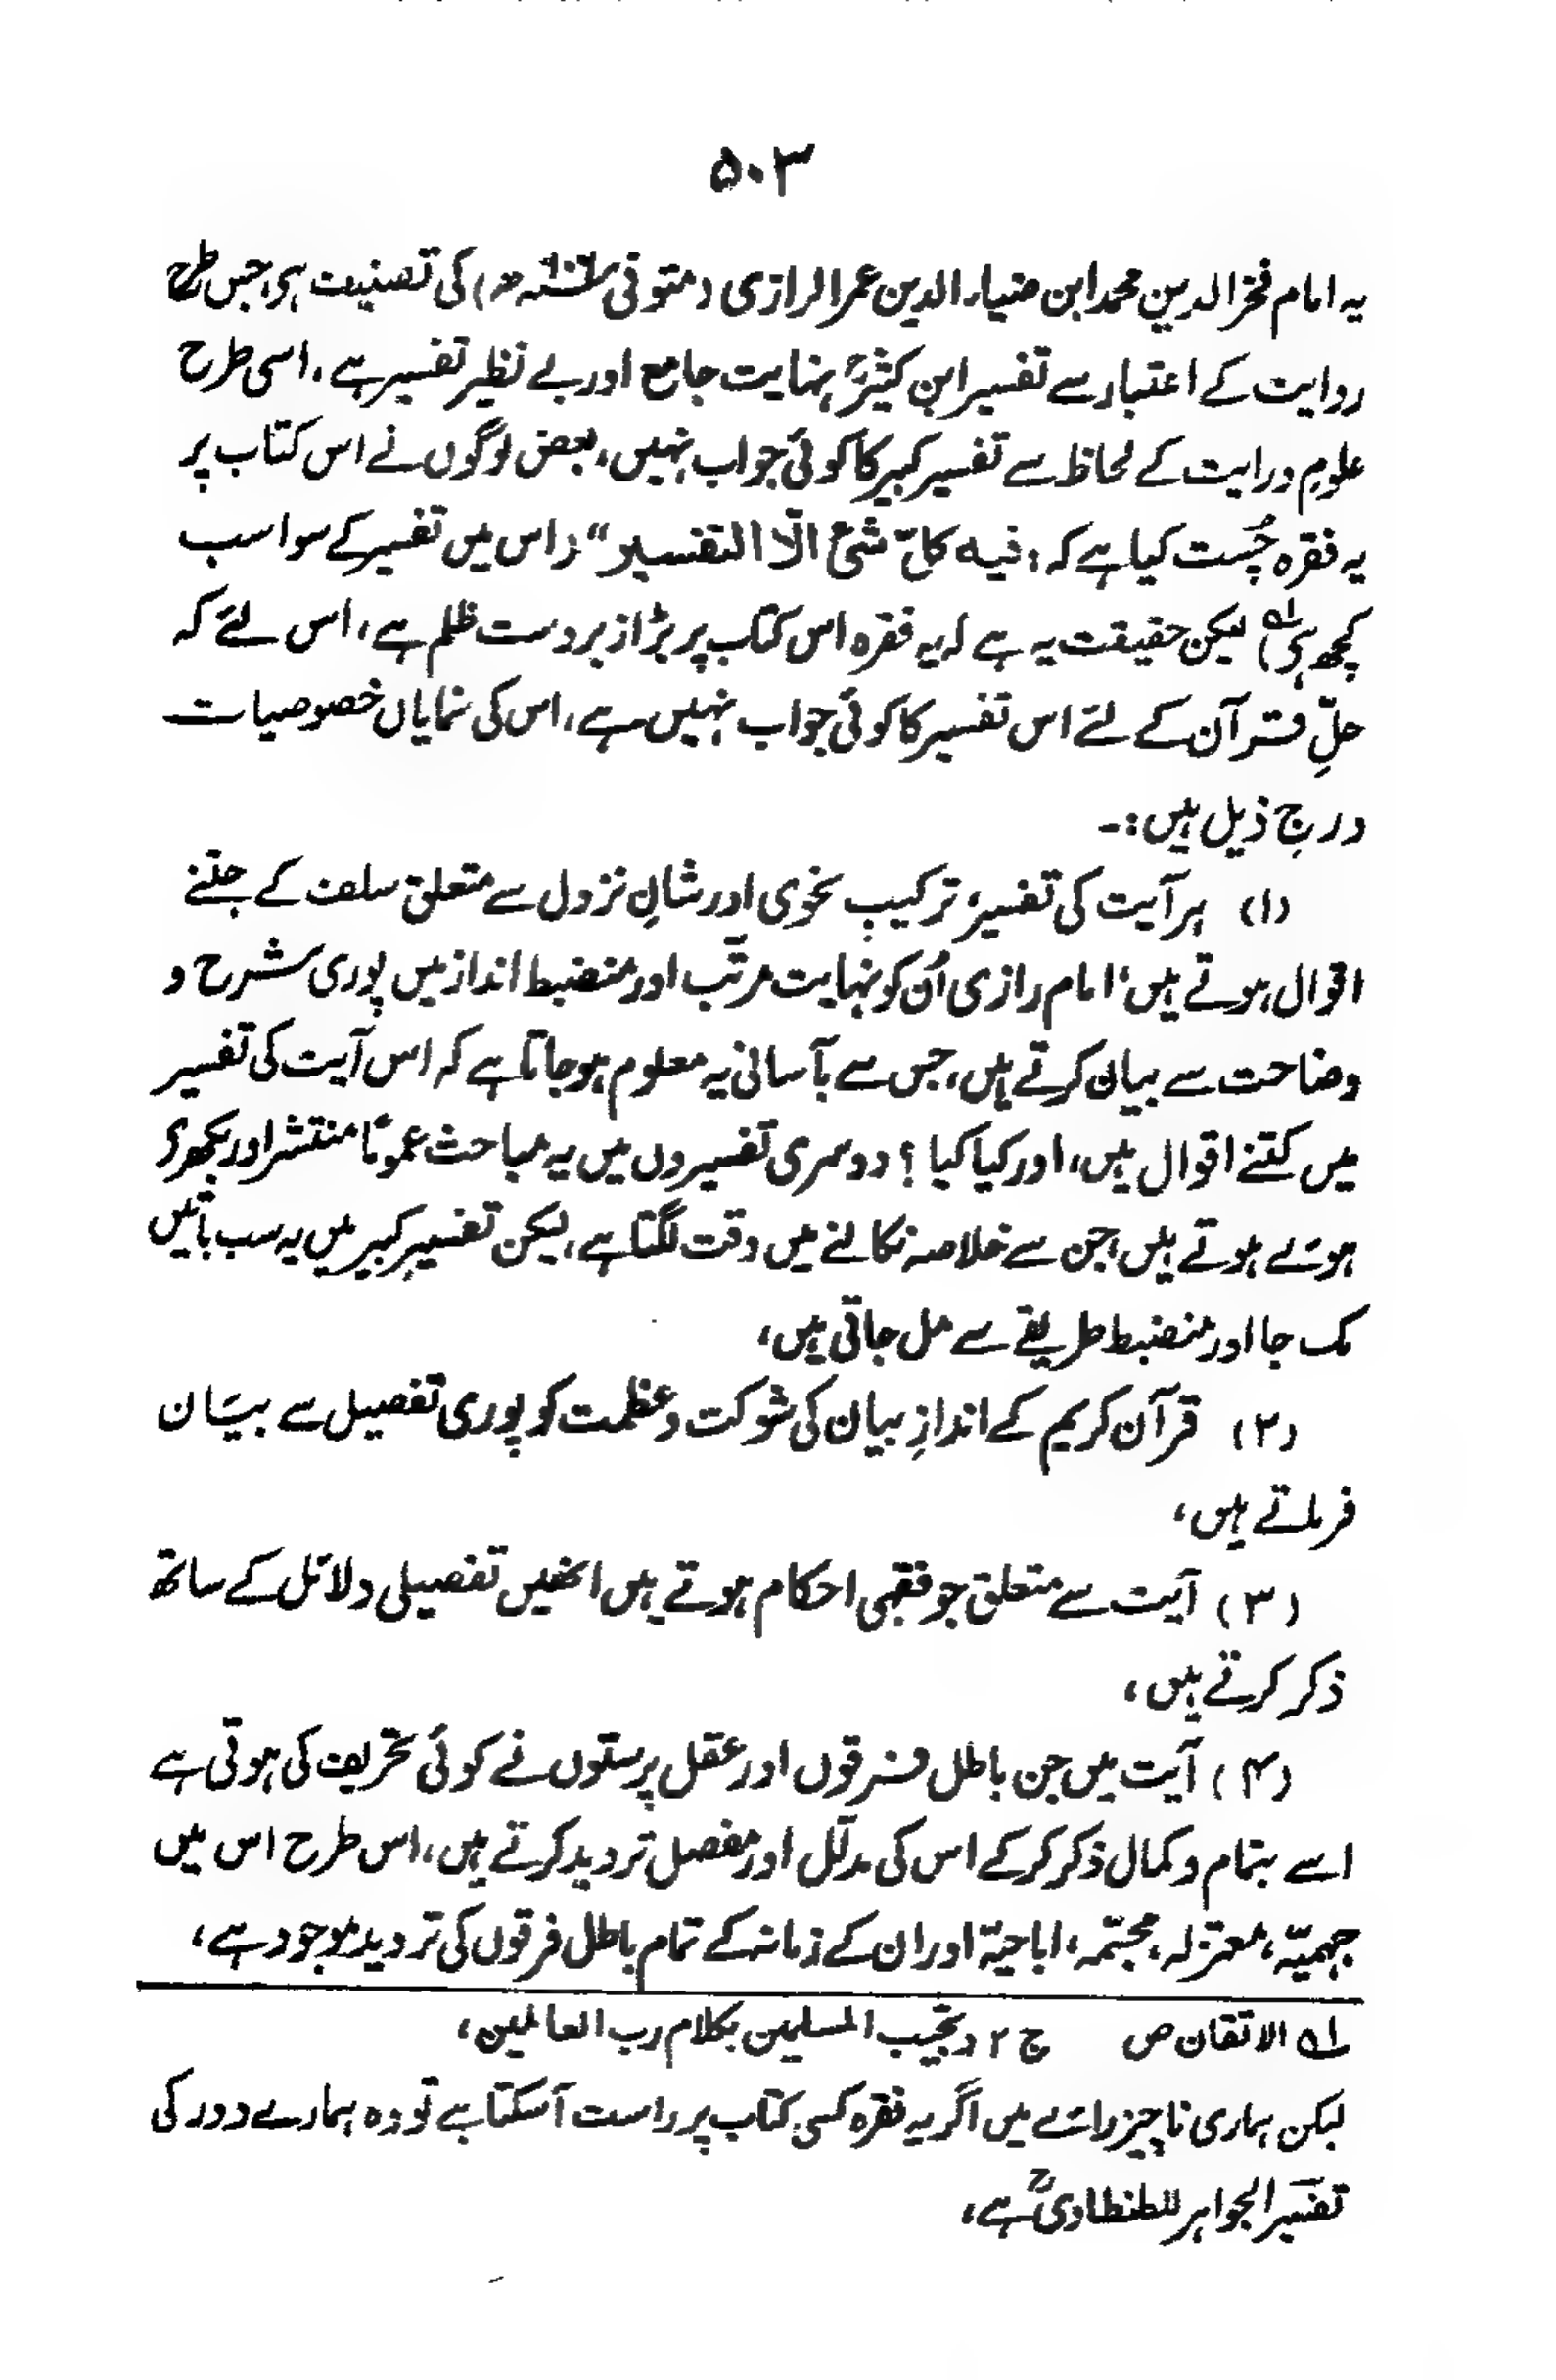 ۵۰۳
یہ امام فخر الدین محمد ابن ضیاء الدین عمر الرازی (متوفی ۶۰۶ھ) کی تصنیف ہی، جس طرح
روایت کے اعتبار سے تفسیر ابن کثیرؒ نہایت جامع اور بے نظیر تفسیر ہے، اسی طرح
علومِ درایت کے لحاظ سے تفسیر کبیر کا کوئی جواب نہیں، بعض لوگوں نے اس کتاب پر
یہ فقرہ چُست کیا ہے کہ: فیہ کلّ شیٔ الّا التفسیر“ (اس میں تفسیر کے سوا سب
کچھ ہی)لہ لیکن حقیقت یہ ہے کہ یہ فقرہ اس کتاب پر بڑا زبردست ظلم ہے، اس لئے کہ
حلِّ قرآن کے لئے اس تفسیر کا کوئی جواب نہیں ہے، اس کی نمایاں خصوصیات
درجِ ذیل ہیں:۔
(۱) ہر آیت کی تفسیر، ترکیبِ نحوی اور شانِ نزول سے متعلق سلف کے جتنے
اقوال ہوتے ہیں، امام رازی اُن کو نہایت مرتّب اور منضبط انداز میں پوری شرح و
وضاحت سے بیان کرتے ہیں، جس سے بآسانی یہ معلوم ہو جاتا ہے کہ اس آیت کی تفسیر
میں کتنے اقوال ہیں، اور کیا کیا؟ دوسری تفسیروں میں یہ مباحث عموماً منتشر اور بکھرے
ہوئے ہوتے ہیں، جن سے خلاصہ نکالنے میں وقت لگتا ہے، لیکن تفسیرِ کبیر میں یہ سب باتیں
یک جا اور منضبط طریقے سے مل جاتی ہیں،
(۲) قرآن کریم کے اندازِ بیان کی شوکت و عظمت کو پوری تفصیل سے بیان
فرماتے ہیں،
(۳) آیت سے متعلق جو فقہی احکام ہوتے ہیں انھیں تفصیلی دلائل کے ساتھ
ذکر کرتے ہیں،
(۴) آیت میں جن باطل فرقوں اور عقل پرستوں نے کوئی تحریف کی ہوتی ہے
اسے بتمام و کمال ذکر کر کے اس کی مدلّل اور مفصل تردید کرتے ہیں، اس طرح اس میں
جہمیّہ، معتزلہ، مجسّمہ، اباحیّہ اور ان کے زمانہ کے تمام باطل فرقوں کی تردید موجود ہے،
لہ الاتقان ص ج ۲ المسلمین بکلام رب العالمین،
لیکن ہماری ناچیز رائے میں اگر یہ فقرہ کسی کتاب پر راست آسکتا ہے تو وہ ہمارے دور کی
تفسیر الجواہر للطنطاویؒ ہے،